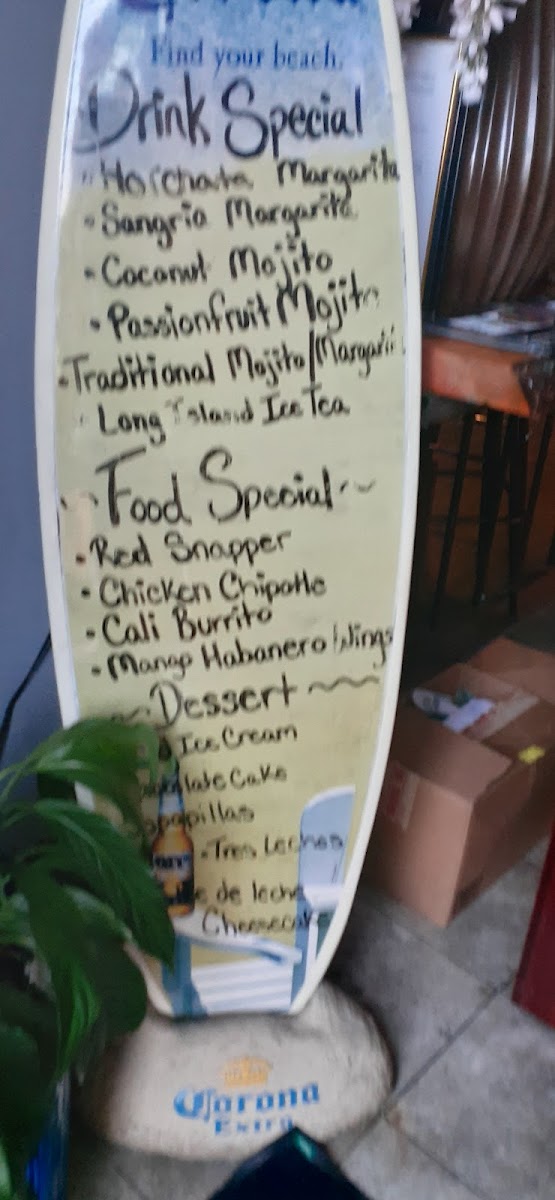 Find your beach.
Drink Special
Horchata Margarita
Sangria Margarita
Coconut Mojito
Passionfruit Mojito
Traditional Mojito/Margari
Long Island Ice Tea
Food Special
Red Snapper
Chicken Chipotle
Cali Burrito
Mango Habanero Wings
Dessert
Ice Cream
late Cake
papillas
Tres Leches
de leche
Cheesecake
Corona
Extra